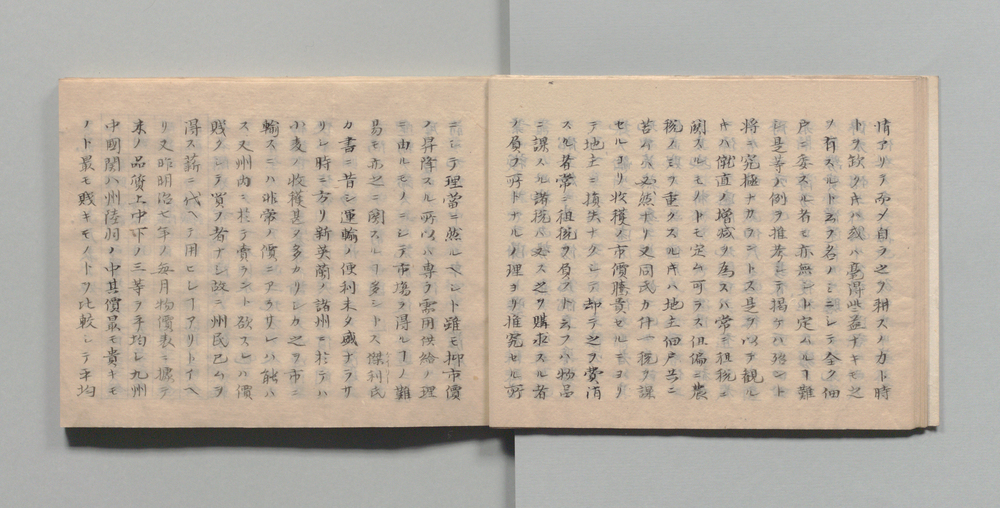 情アリテ而メ自ラ之ヲ耕スノ力ト時
トヲ欠ク片ハ或ハ毫得些益ナキモ之
ヲ有スルト云ヲ名ノミニシテ全ク佃
戸ニ委スル者モ亦無シト定ムルヿ難
シ是等ノ例ヲ推考シテ掲ケハ殆ント
将ニ究極ナカラントス是ヲ以テ観ル
片ハ僦直ノ増減ヲ為スハ常ニ租税ニ
関スルモノトモ定ム可ラス但偏ニ農
税ノミヲ重クスル片ハ地主佃戸共ニ
苦ムハ必然ナリ又同氏カ件一税ヲ課
セルヨリ収穫ノ市価騰貴セルニヨリ
テ地主ニ損失ナクシテ却テ之ヲ賞消
スル者常ニ租税ヲ負フト云フハ物品
ニ課スル諸税ハ又ス之ヲ購求スル者
ノ負フ所トナルノ理ヨリ推究セル所
ニシテ理当ニ然ルヘシト雖モ抑市価
ノ昇降スル所以ハ専ラ需用供給ノ理
ニ由ルモノニシテ市場ヲ得ルヿノ難
易モ亦之ニ関スルヿ多シトス傑利氏
カ書ニ昔シ運輸ノ便利未タ盛ナラサ
リシ時ニ方リ新英蘭ノ諸州ニ於テハ
小麦ノ收穫甚タ多カリシカ之ヲ市ニ
輸スニハ非常ノ價ニアラサレハ能ハ
ス又州内ニ於テ賣ラント欲スレハ價
賤クシテ買フ者ナシ故ニ州民已ムヲ
得ス薪ニ代ヘテ用ヒシヿアリトイヘ
リ又昨明治七年ノ毎月物價表ニ據テ
米ノ品位上中下ノ三等ヲ平均シ九州
中國関八州陸羽ノ中其價最モ貴キモ
ノト最モ賤キモノトヲ比較シテ平均